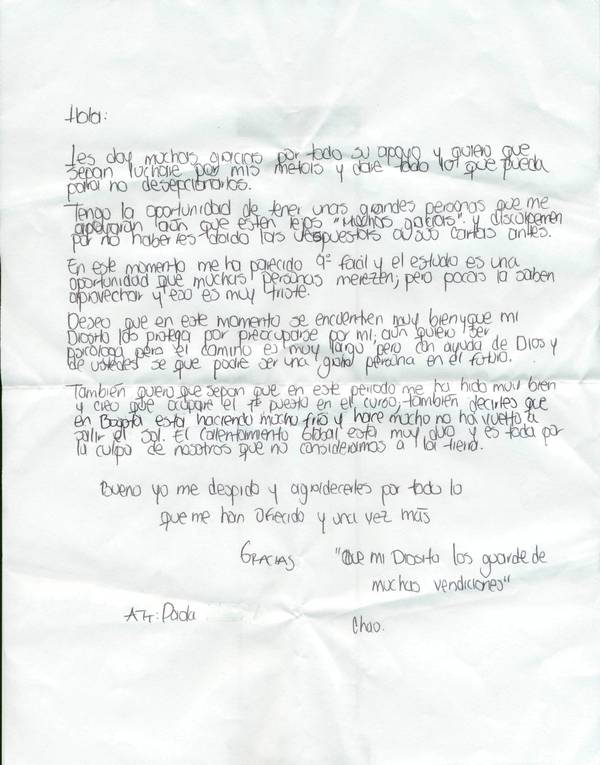 Hola:
Les doy muchas gracias por todo su apoyo y quiero que
sepan luchare por mis metas y dare todo lo que pueda
para no desepcionarlos.
Tengo la oportunidad de tener unas grandes personas que me
apoyaran aún que esten lejos "Muchas gracias". y disculpemen
por no haberles dado las respuestas a sus cartas antes.
En este momento me ha parecido 9º facil y el estudio es una
oportunidad que muchas personas merezen; pero pocas la saben
aprovechar y eso es muy triste.
Deseo que en este momento se encuentren muy bien y que mi
Diosito los protega por preocuparse por mi; aún quiero ser
psicologa pero el camino es muy largo pero con ayuda de Dios y
de ustedes se que podre ser una gran persona en el futuro.
También quiero que sepan que en este periodo me ha hido muy bien
y creo que ocupare el puesto en el curso; también decirles que
en Bogotá esta haciendo mucho frio y hace mucho no ha vuelto a
salir el sol. El Calentamiento Global esta muy duro y es todo por
la culpa de nosotros que no consideramos a la tierra.
Bueno yo me despido y agradecerles por todo lo
que me han ofrecido y una vez más
GRACIAS "Que mi Diosito los guarde de
muchas vendiciones"
Att: Paola
Chao.